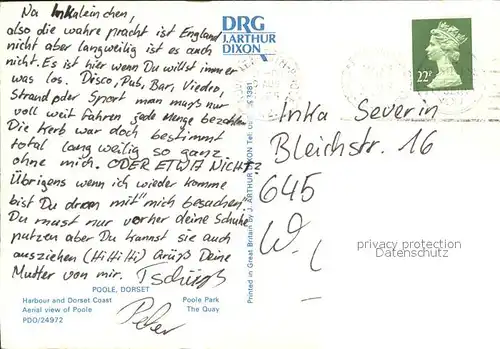 Na Inkaleinchen,
also die wahre pracht ist England
nicht aber langweilig ist es auch
nicht. Es ist hier wenn Du willst immer
was los. Disco, Pub, Bar, Viedeo,
Strand oder Sport man muß nur
voll weit fahren jede Menge bezahlen
Die Kerb war doch bestimmt
total langweilig so ganz
ohne mich. ODER ETWA NICHT?
Übrigens wenn ich wieder komme
bist Du dran mit mich besuchen.
Du must nur vorher deine Schuhe
putzen aber Du kannst sie auch
ausziehen (Hi Hi Hi) Grüß Deine
Mutter von mir. Tschüß
Peter
POOLE, DORSET
Harbour and Dorset Coast Poole Park
Aerial view of Poole The Quay
PDO/24972
DRG
J.ARTHUR
DIXON
Printed in Great Britain by J. ARTHUR DIXON
3381
22P
Inka Severin
Bleichstr. 16
645
privacy protection
Datenschutz